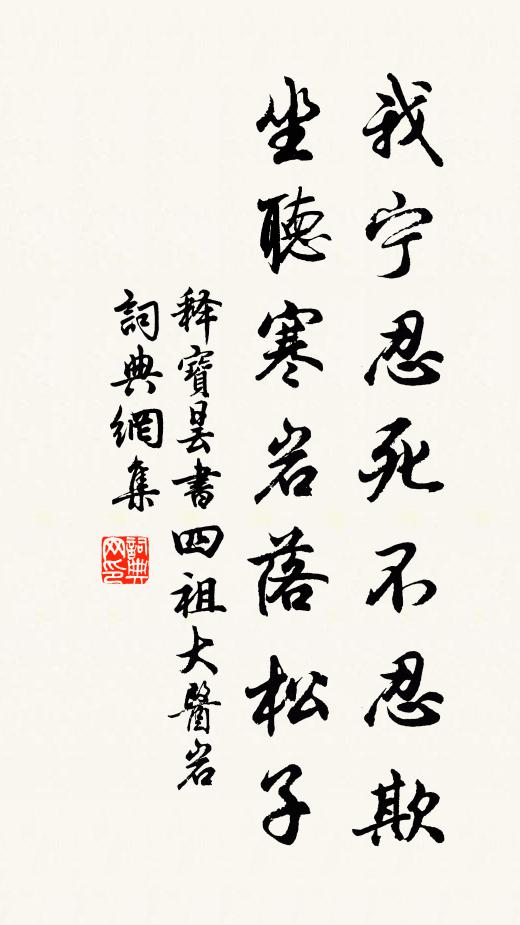 我宁忍死不忍欺
坐聽寒岩落松子
释寶昙書四祖大醫岩
詞典網集
詞典網印